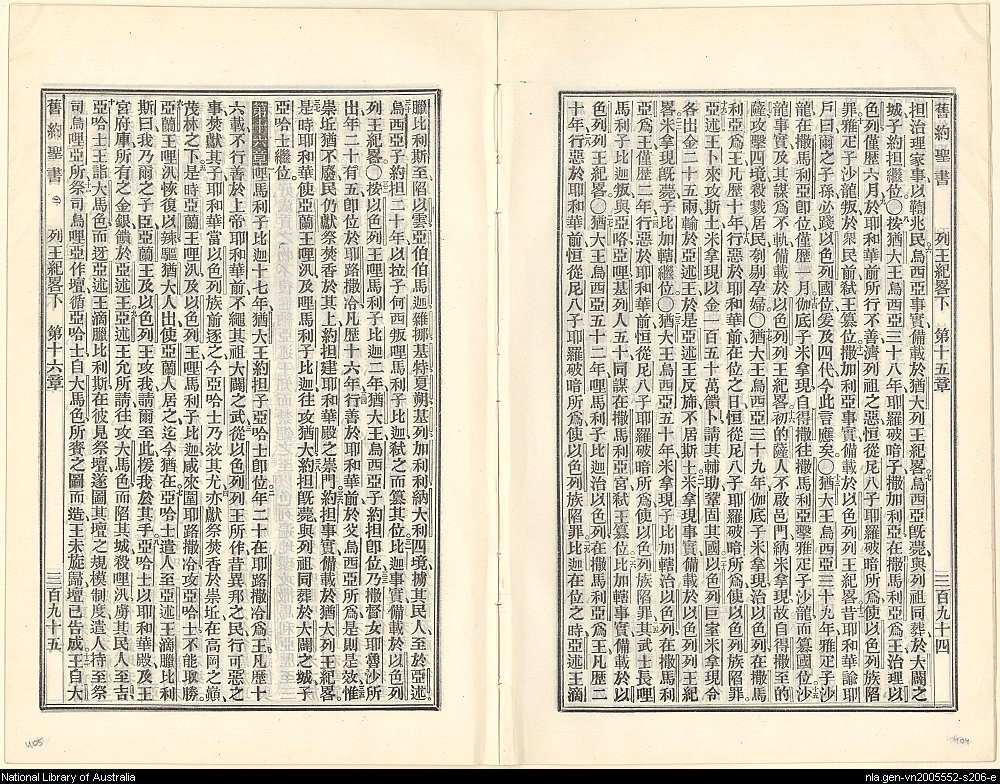 舊約聖書 列王紀畧下 第十五章 三百九十四
担治理家事以鞫兆民烏西亞事實備載於猶大列王紀畧烏西亞旣薨與列祖同葬於大闢之
城子約担繼位〇按猶大王烏西亞三十八年耶羅破暗子撒加利亞在撒馬利亞爲王治理以
色列僅歷六月於耶和華前所行不善濟列祖之惡恒從尼八子耶羅破暗所爲使以色列族陷
罪雅疋子沙龍叛於衆民前弑王簒位撒加利亞事實備載於以色列列王紀畧昔耶和華諭耶
戶曰爾之子孫必踐以色列國位爰及四代今此言應矣〇猶大王烏西亞三十九年雅疋子沙
龍在撒馬利亞卽位僅歷一月伽底子米拿現自得撒往撒馬利亞擊雅疋子沙龍而簒國位沙
龍事實及其謀爲不軌備載於以色列列王紀畧初的薩人不啟邑門納米拿現故自得撒至的
薩攻擊四境殺戮居民刳剔孕婦〇猶大王烏西亞三十九年伽底子米拿現治以色列在撒馬
利亞爲王凡歷十年行惡於耶和華前在位之日恒從尼八子耶羅破暗所爲使以色列族陷罪
亞述王卜來攻斯土米拿現以金一百五十萬饋卜請其輔助鞏固其國以色列巨室米拿現令
各出金二十五兩輸於亞述王於是亞述王反旆不居斯土米拿現事實備載於以色列列王紀
畧米拿現旣薨子比加轄繼位〇猶大王烏西亞五十年米拿現子比加轄治以色列在撒馬利
亞爲王僅歷二年行惡於耶和華前恒從尼八子耶羅破暗所爲使以色列族陷罪其武士長哩
馬利子比迦叛與亞咯亞哩基列人五十同謀在撒馬利亞宮弑王簒位比加轄事實備載於以
色列列王紀畧〇猶大王烏西亞五十二年哩馬利子比迦治以色列在撒馬利亞爲王凡歷二
十年行惡於耶和華前恒從尼八子耶羅破暗所爲使以色列族陷罪比迦在位之時亞述王滴
臘比利斯至陷以雲亞伯伯馬迦雜挪基特夏朔基列加利利納大利四境擄其民人至於亞述
烏西亞子約担二十年以拉子何西叛哩馬利子比迦弑之而簒其位比迦事實備載於以色列
列王紀畧〇按以色列王哩馬利子比迦二年猶大王烏西亞子約担卽位乃撒督女耶魯沙所
出年二十有五卽位於耶路撒冷凡歷十六年行善於耶和華前於父烏西亞所爲是則是效惟
崇坵猶不廢民仍獻祭焚香於其上約担建耶和華殿之崇門約担事實備載於猶大列王紀畧
是時耶和華使亞蘭王哩汛及哩馬利子比迦往攻猶大約担旣薨與列祖同葬於大闢之城子
亞哈士繼位
第十六章 哩馬利子比迦十七年猶大王約担子亞哈士卽位年二十在耶路撒冷爲王凡歷十
六載不行善於上帝耶和華前不繩其祖大闢之武從以色列列王所作昔異邦之民行可惡之
事焚獻其子耶和華當以色列族前逐之今亞哈士乃效其尤亦獻祭焚香於崇坵在高岡之巔
茂林之下是時亞蘭王哩汛及以色列王哩馬利子比迦咸來圍耶路撒冷攻亞哈士不能取勝
亞蘭王哩汛恢復以辣驅猶大人出使亞蘭人居之迄今猶在亞哈士遣人至亞述王滴臘比利
斯曰我乃爾之子臣亞蘭王及以色列王攻我請爾至此援我於其手亞哈士以耶和華殿及王
宮府庫所有之金銀饋於亞述王亞述王允所請往攻大馬色而陷其城殺哩汛虜其民人至吉
亞哈士王詣大馬色而迓亞述王滴臘比利斯在彼見祭壇遂圖其壇之規模制度遣人持至祭
司烏哩亞所祭司烏哩亞作壇循亞哈士自大馬色所賚之圖而造王未旋歸壇已告成王自大
舊約聖書 列王紀畧下 第十六章 三百九十五
405
404
National Library of Australia
nla.gen-vn2005552-s206-e